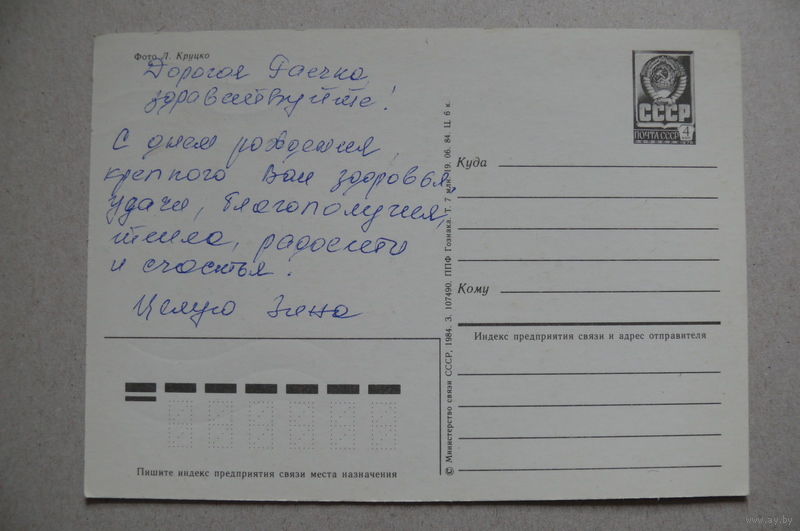 Фото Л. Круцко
Дорогая Раечка,
здравствуйте!
С днем рождения,
крепкого Вам здоровья,
удачи, благополучия,
тепла, радости
и счастья!
Целую Зина
СССР
ПОЧТА СССР 4
Куда
Кому
Индекс предприятия связи и адрес отправителя
© Министерство связи СССР, 1984. З. 107490. ППФ Гознака. Т. 7 млн. 19. 06. 84. Ц. 6 к.
Пишите индекс предприятия связи места назначения
www.ay.by